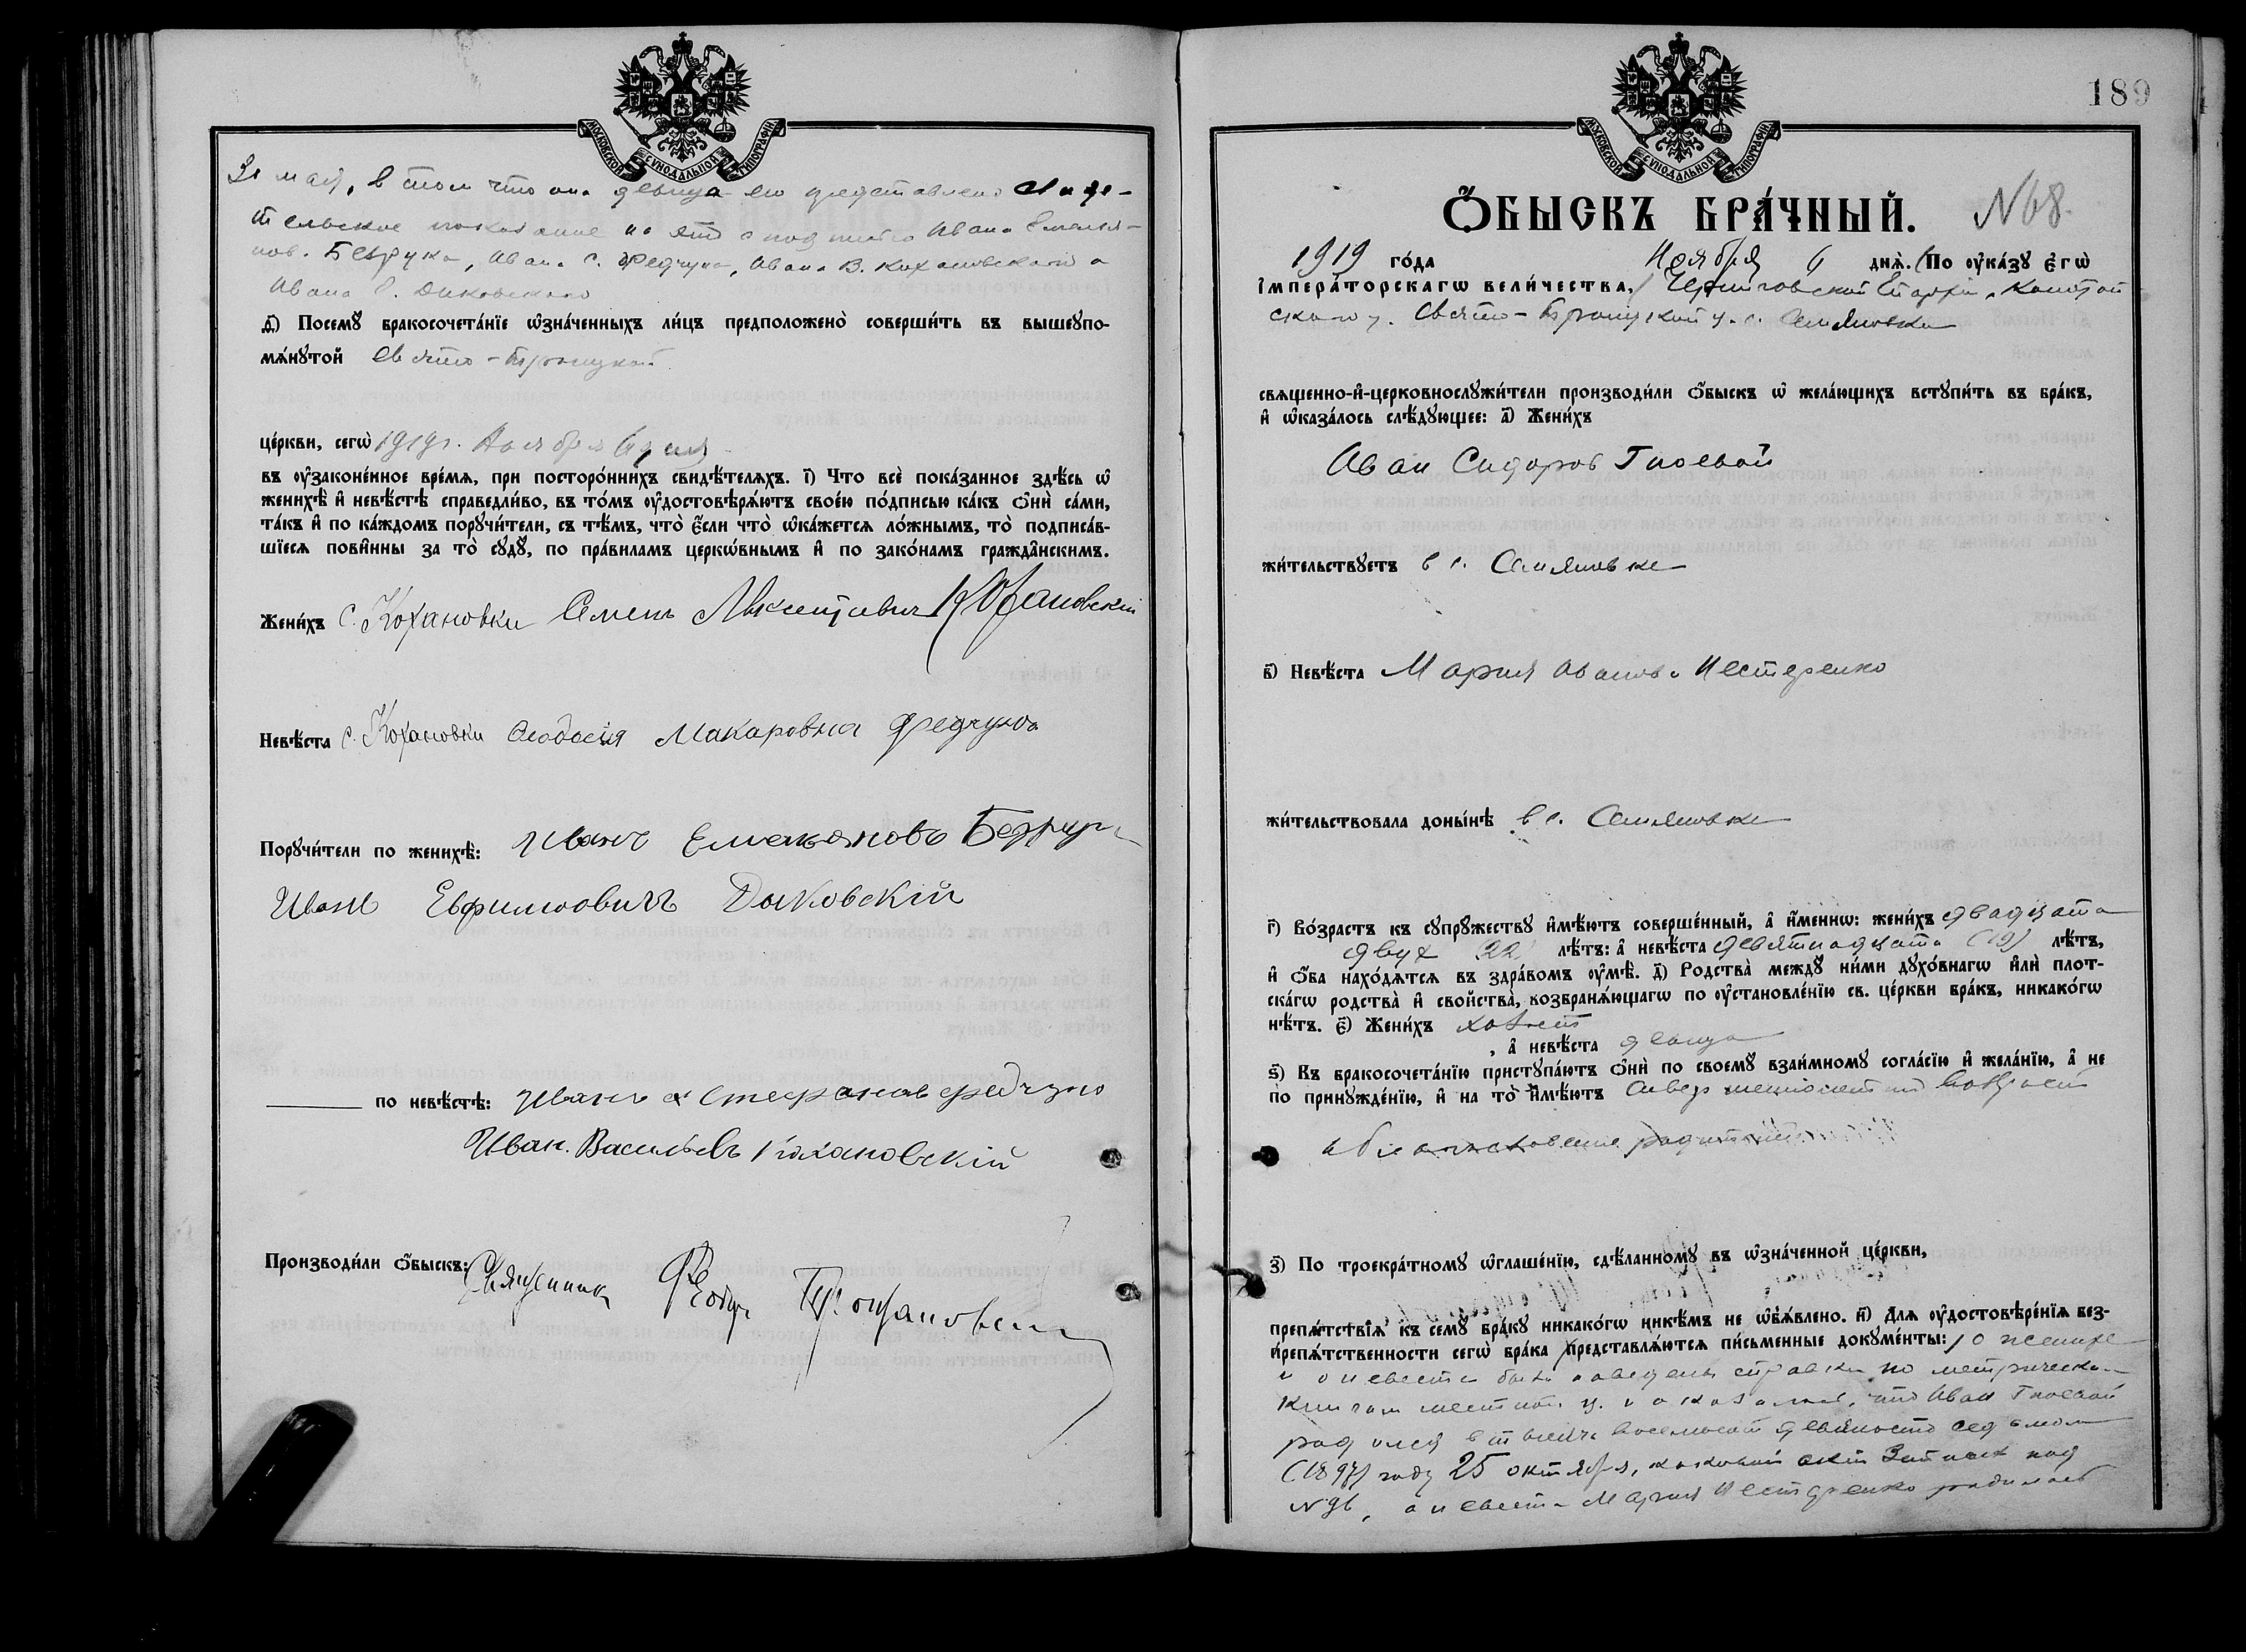 МОСКОВСКОЙ СУНОДАЛЬНОЙ ТИПОГРАФІИ
31 мая, в том что она девица ею представлено свиде-
тельское показание на это с подписью Ивана Емелья-
нов. Безрука, Ивана С. Федчуна, Ивана В. Кохановского и
Ивана Е. Дыковского
д҃) Посемꙋ̀ бракосочета́нїе ѡ҆зна́ченныхъ ли́цъ предположено̀ соверши́ть въ вышеꙋпо-
мѧ́нꙋтой Свято-Троицкой
це́ркви, сегѡ̀ 1919 г. Ноября 6 дня
въ ᲂу҆законе́нное вре́мѧ, при посторо́ннихъ свидѣ́телѧхъ. і҃) Что всѐ пока́занное здѣ́сь ѡ҆
женихѣ̀ и҆ невѣ́стѣ справедли́во, въ то́мъ ᲂу҆достовѣрѧ́ютъ свое́ю по́дписью ка́къ ѻ҆нѝ са́ми,
та́къ и҆ по ка́ждомъ порꙋчи́тели, съ тѣ́мъ, что̀ є҆́сли что̀ ѡ҆ка́жетсѧ ло́жнымъ, то̀ подписа́в-
шїесѧ пови́нны за то̀ сꙋдꙋ̀, по пра́виламъ церкѡ́внымъ и҆ по зако́намъ гражда́нскимъ.
Жени́хъ с. Кохановки Семенъ Авксентиевич Кохановскій
Невѣ́ста с. Кохановки Феодосія Макаровна Федчунова
Порꙋчи́тели по женихѣ̀: Иванъ Емельяновъ Безрук
Иванъ Евфимовичъ Дыковскій
по невѣ́стѣ: Иванъ Стефановъ Федчуно
Иван. Васильевъ Кохановскій
Производи́ли ѻ҆́быскъ: Священникъ Феодор
189
МОСКОВСКОЙ СУНОДАЛЬНОЙ ТИПОГРАФІИ
Ѻ҆́БЫСКЪ БРА́ЧНЫЙ. N 68.
1919 го́да Ноября 6 днѧ̀. (По ᲂу҆ка́зꙋ є҆гѡ̀
і҆мпера́торскагѡ вели́чества,) Черниговской Епархіи, Конотоп
ского у. Свято-Троицкой ц. с. Семяновки
свѧщенно-и҆-церковнослꙋжи́тели производи́ли ѻ҆́быскъ ѡ҆ жела́ющихъ встꙋпи́ть въ бра́къ,
и҆ ѡ҆каза́лось слѣ́дꙋющее: а҃) Жени́хъ
Иван Сидоров Гноевой
жи́тельствꙋетъ в с. Семяновке
в҃) Невѣ́ста Мария Иванова Нестеренко
жи́тельствовала доны́нѣ в с. Семяновке
г҃) Во́зрастъ къ сꙋпрꙋжествꙋ и҆мѣ́ютъ соверше́нный, а҆ и҆́меннѡ: жени́хъ двадцати
двух 22 лѣ́тъ: а҆ невѣ́ста девятнадцати (19) лѣ́тъ,
и҆ ѻ҆́ба нахо́дѧтсѧ въ здра́вомъ ᲂу҆мѣ̀. д҃) Родства̀ междꙋ̀ ни́ми дꙋхо́внагѡ и҆лѝ плот-
ска́гѡ родства̀ и҆ свойства̀, возбранѧ́ющагѡ по ᲂу҆становле́нїю св. це́ркви бра́къ, никако́гѡ
нѣ́тъ. є҃) Жени́хъ холост
, а҆ невѣ́ста девица
ѕ҃) Къ бракосочета́нїю пристꙋпа́ютъ ѻ҆нѝ по своемꙋ̀ взаи́мномꙋ согла́сїю и҆ жела́нїю, а҆ не
по принꙋжде́нїю, и҆ на то̀ и҆мѣ́ютъ совершеннолетний возраст
и благословение родителей
з҃) По троекра́тномꙋ ѡ҆глаше́нїю, сдѣ́ланномꙋ въ ѡ҆зна́ченной це́ркви,
препѧ́тствїѧ къ семꙋ̀ бра́кꙋ никако́гѡ никѣ́мъ не ѡ҆б̾ѧ́влено. и҃) Длѧ ᲂу҆достовѣре́нїѧ без-
препѧ́тственности сегѡ̀ бра́ка представлѧ́ютсѧ пи́сьменные докꙋме́нты: о женихе
и о невесте были наведены справки по метрическим
книгам местной ц. и оказалось, что Иван Гноевой
родился в тысяча восемьсот девяносто седьмом
(1897) году 25 октября, каковой акт записан под
№ 96, а невеста Мария Нестеренко родилась